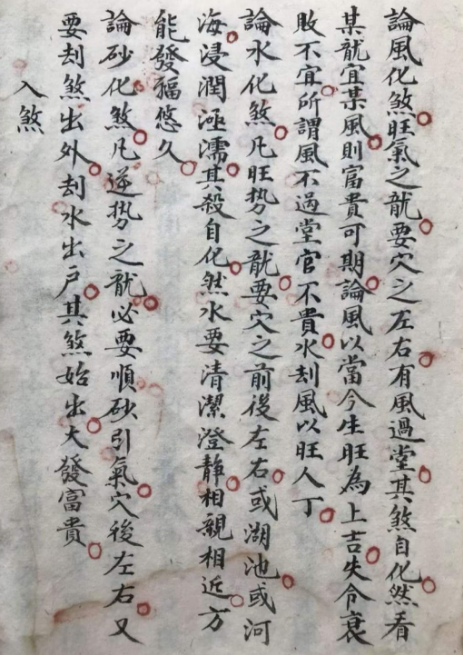 論風化煞旺氣之龍要穴之左右有風過堂其煞自化然看
某龍宜某風則富貴可期論風以當今生旺為上吉失令衰
敗不宜所謂風不過堂官不貴水刮風以旺人丁
論水化煞凡旺势之龍要穴之前後左右或湖池或河
海浸潤極濡其殺自化然水要清潔澄静相親相近方
能發福悠久
論砂化煞凡逆势之龍必要順砂引氣穴後左右又
要刮煞出外刮水出戶其煞始出大發富貴
入煞